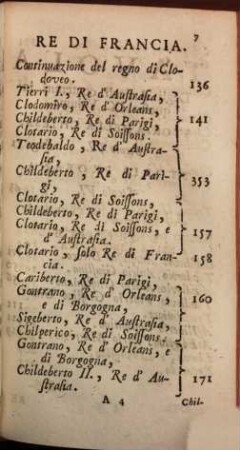 RE DI FRANCIA. 7
Continuazione del regno di Clo-
doveo. 136
Tierri I., Re d' Austrasia,
Clodomiro, Re d' Orleans,
Childeberto, Re di Parigi, 141
Clotario, Re di Soissons.
Teodebaldo, Re d' Austra-
sia,
Childeberto, Re di Pari-
gi, 353
Clotario, Re di Soissons,
Childeberto, Re di Parigi,
Clotario, Re di Soissons, e
d' Austrasia. 157
Clotario, solo Re di Fran-
cia. 158
Cariberto, Re di Parigi,
Gontrano, Re d' Orleans,
e di Borgogna, 160
Sigeberto, Re d' Austrasia,
Chilperico, Re di Soissons.
Gontrano, Re d' Orleans, e
di Borgogna,
Childeberto II., Re d' Au-
strasia. 171
A 4 Chil-